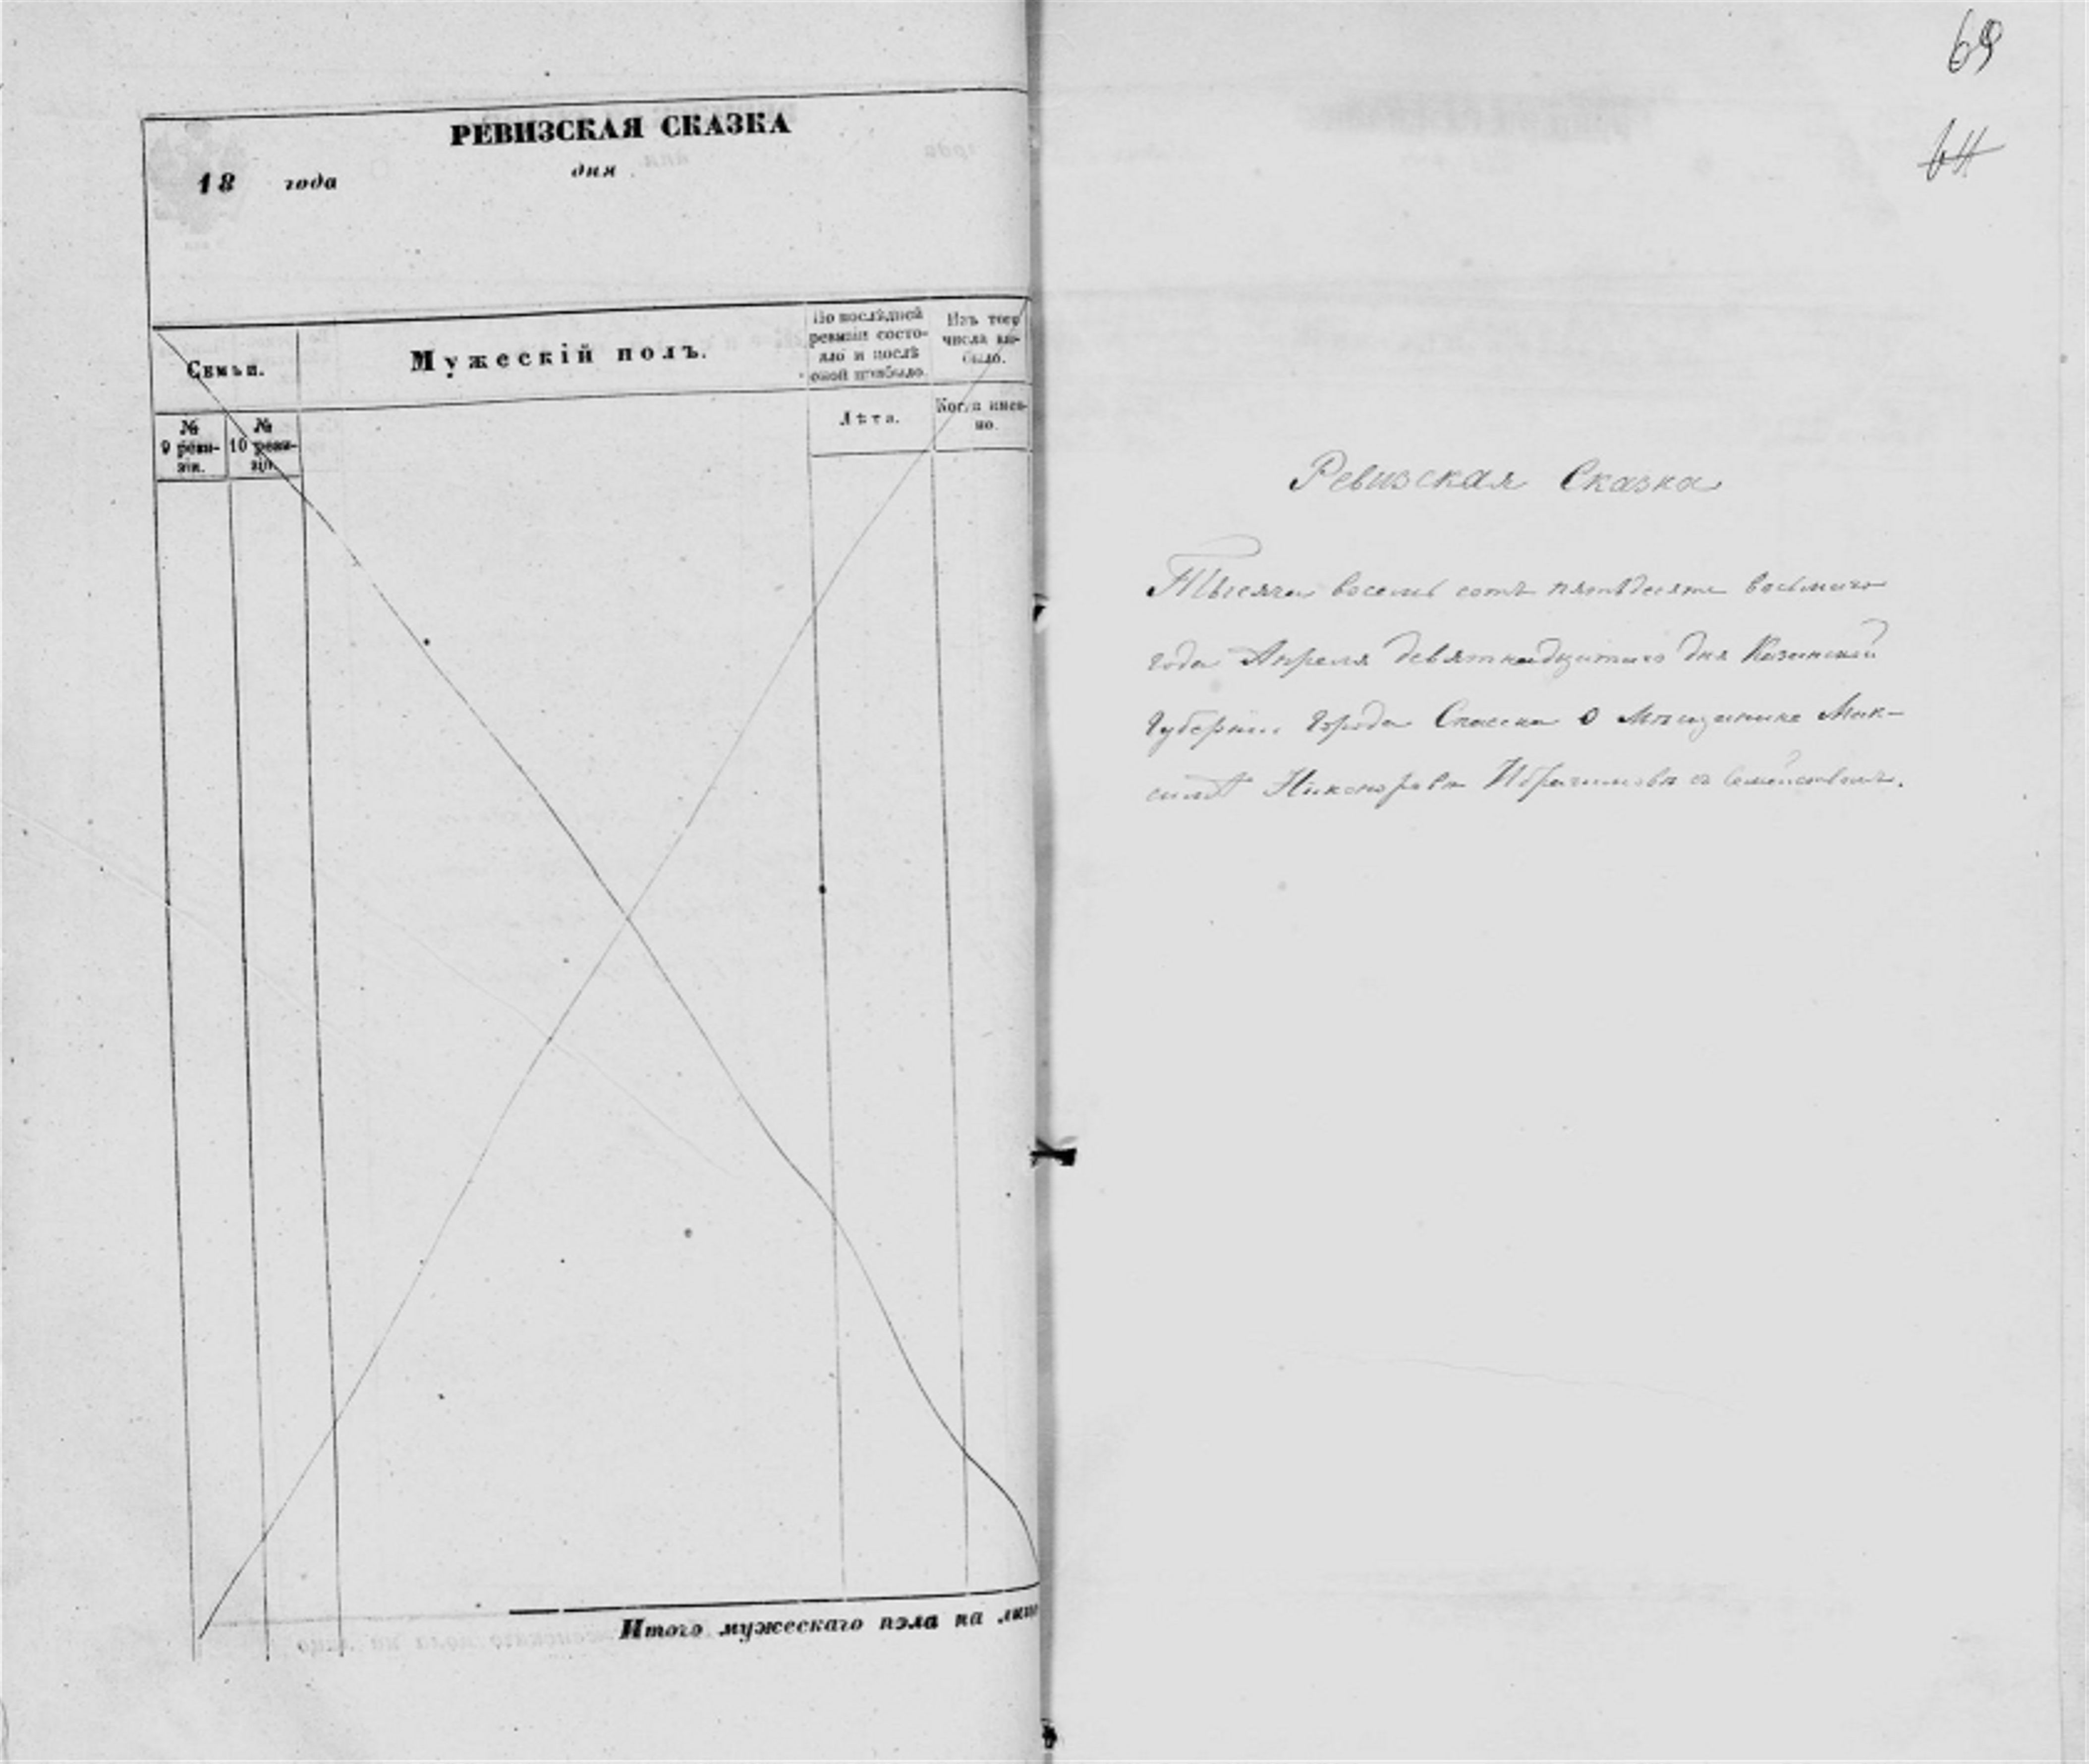 РЕВИЗСКАЯ СКАЗКА
18 года дня
Семьи.
Мужескій полъ.
По послѣдней ревизіи состояло и послѣ оной прибыло.
Изъ того числа выбыло.
№ 9 ревизіи.
№ 10 ревизіи.
Лѣта.
Когда именно.
Итого мужескаго пола на лицо
69
64
Ревизская Сказка
Тысяча восемь сотъ пятьдесятъ восьмаго
года Апреля девятнадцатаго дня Казанской
Губерніи города Спасска о Мѣщанине Мак-
симѣ Никонорове с семействомъ.